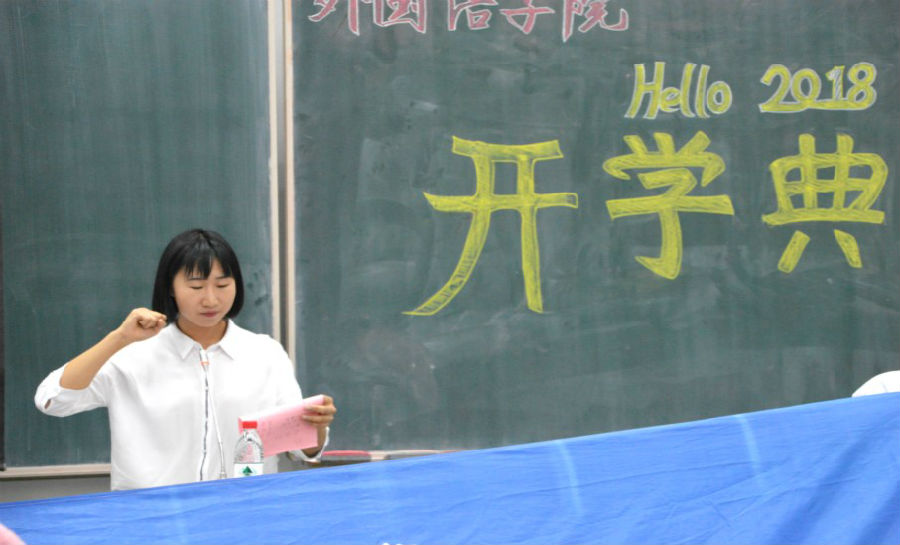 外国语学院
Hello 2018
开学典